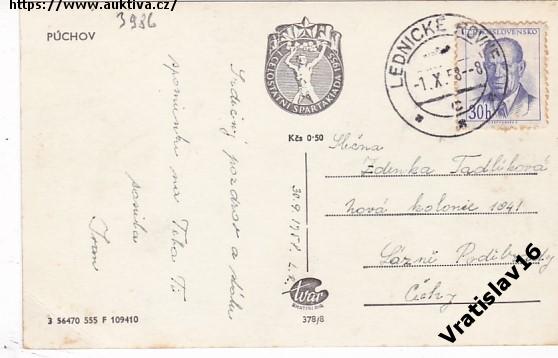 https://www.auktiva.cz
3986
PÚCHOV
CELOSTÁTNÍ SPARTAKIÁDA 1955
LEDNICKÉ ROVNE
-1.X.58--8
ČESKOSLOVENSKO
30h
Kčs 0·50
Srdečný pozdrav a
spomienku na Teba Ti
posiela
Ivan
30.9.1958. L.R.
Slečna
Zdenka Tadlíková
Nová kolonie 1041
Lázně Poděbrady
Čechy
Tvar
BRATISLAVA
378/8
3 56470 555 F 109410
Vratislav16